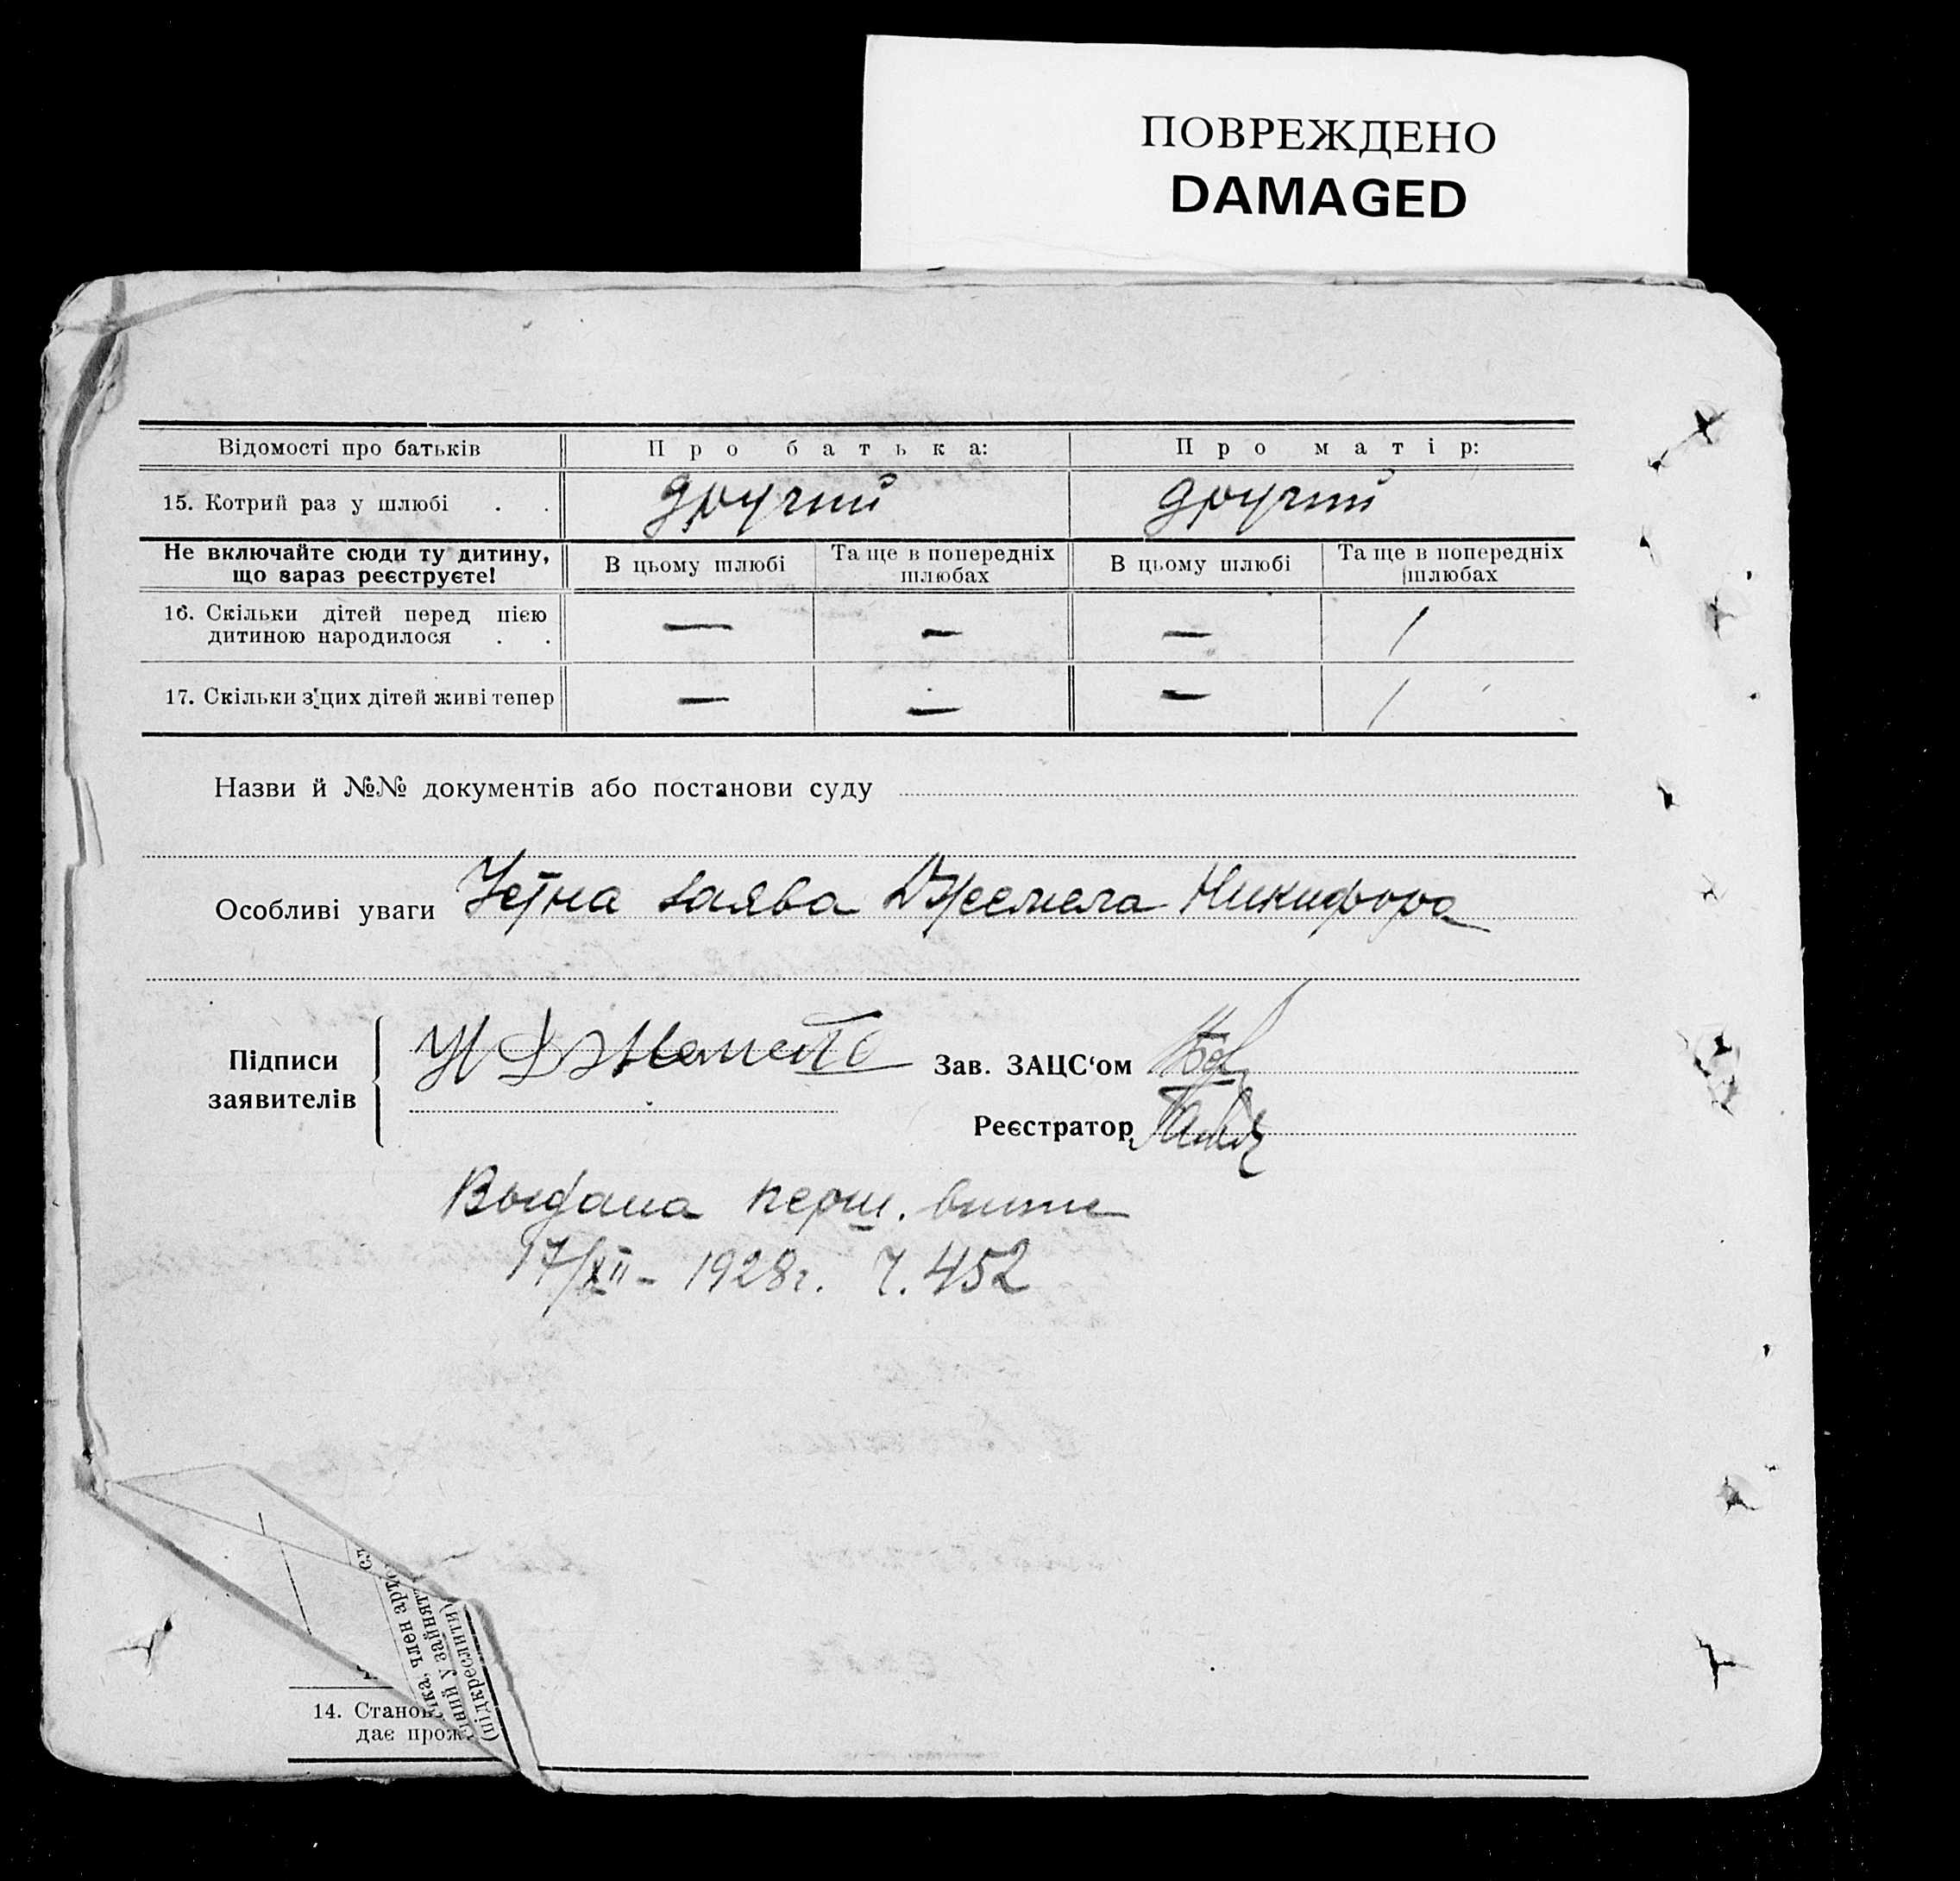 ПОВРЕЖДЕНО
DAMAGED
Відомості про батьків Про батька: Про матір:
15. Котрий раз у шлюбі . . другий другий
Не включайте сюди ту дитину, що зараз реєструєте! В цьому шлюбі Та ще в попередніх шлюбах В цьому шлюбі Та ще в попередніх шлюбах
16. Скільки дітей перед цією
дитиною народилося . . — — — 1
17. Скільки з цих дітей живі тепер — — — 1
Назви й №№ документів або постанови суду
Особливі уваги Устна заява Джемела Никифора
Підписи
заявителів
Зав. ЗАЦС‘ом
Реєстратор
Выдана перш. випис
17/XII - 1928г. Ч. 452
ка, член арт
у зайнят
(підкреслити)
14. Станов
дає прож